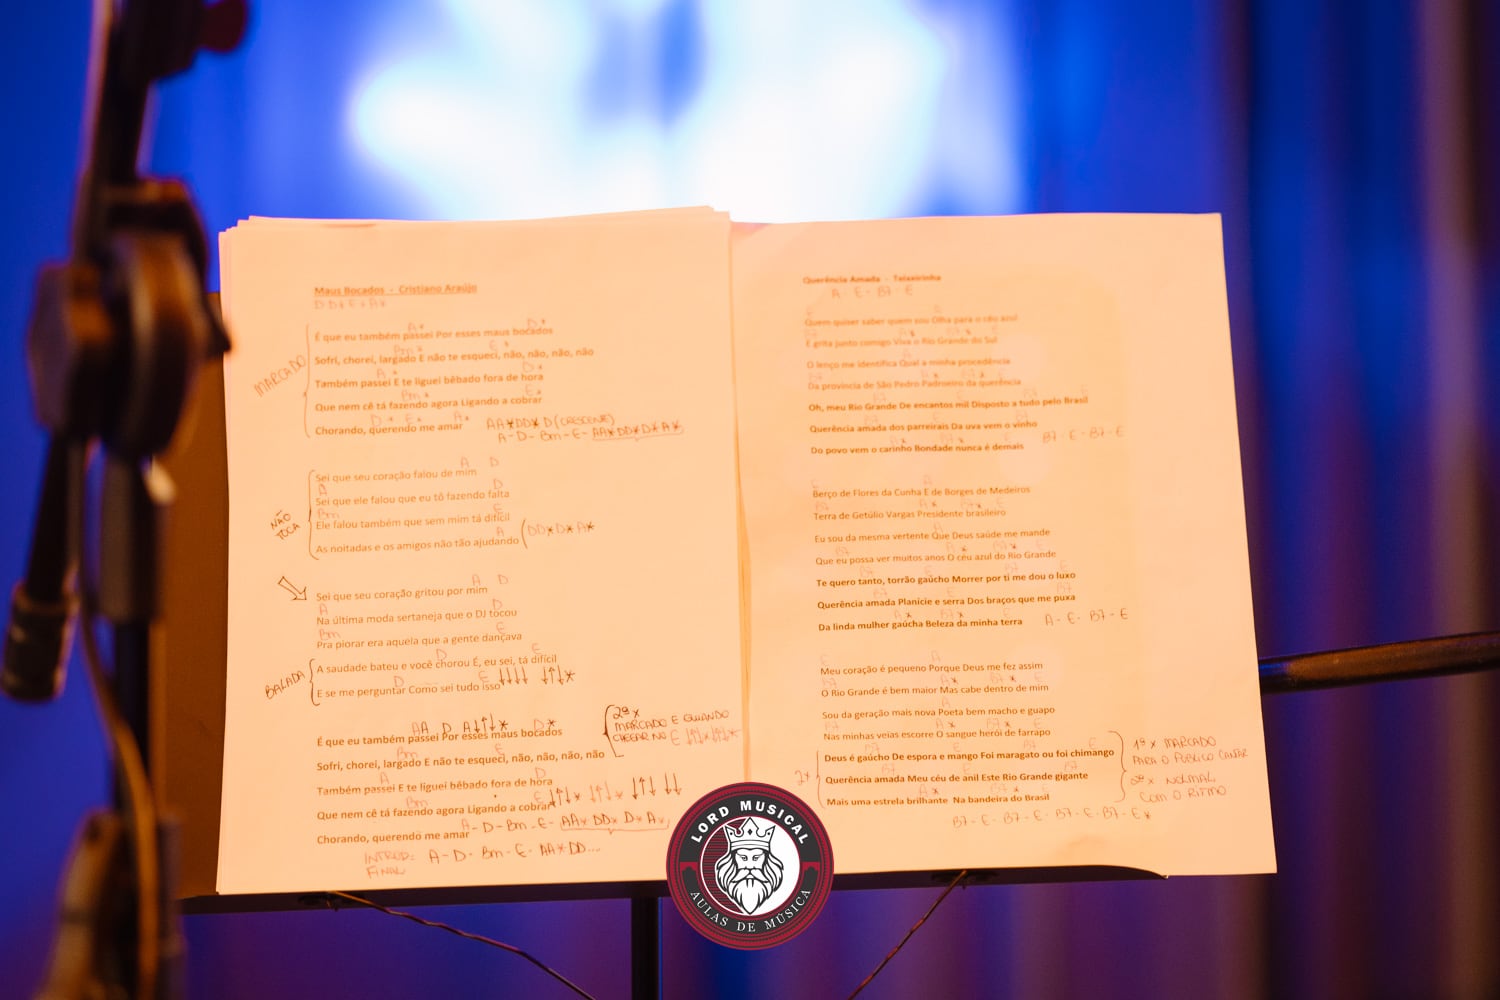 Maus Bocados - Cristiano Araújo
D D* E* A*
A* D*
É que eu também passei Por esses maus bocados
Bm* E*
Sofri, chorei, largado E não te esqueci, não, não, não, não
A* D*
Também passei E te liguei bêbado fora de hora
Bm* E*
Que nem cê tá fazendo agora Ligando a cobrar
D* E* A*
Chorando, querendo me amar AA*DD* D (CRESCENTE)
A - D - Bm - E - AA*DD*D*A*
MARCADO
A D
Sei que seu coração falou de mim
A D
Sei que ele falou que eu tô fazendo falta
Bm E
Ele falou também que sem mim tá difícil
A
As noitadas e os amigos não tão ajudando (DD*D*A*
NÃO TOCA
A D
Sei que seu coração gritou por mim
A D
Na última moda sertaneja que o DJ tocou
Bm E
Pra piorar era aquela que a gente dançava
D E
A saudade bateu e você chorou É, eu sei, tá difícil
D E ↓↓↓↓ ↓↑↓*
E se me perguntar Como sei tudo isso
BALADA
AA D A↓↑↓* D*
É que eu também passei Por esses maus bocados
Bm E
Sofri, chorei, largado E não te esqueci, não, não, não, não
A D
Também passei E te liguei bêbado fora de hora
Bm E ↓↑↓* ↓↑↓* ↓↑ ↓↓
Que nem cê tá fazendo agora Ligando a cobrar
A - D - Bm - E - AA* DD* D* A*
Chorando, querendo me amar
INTROD: A - D - Bm - E - AA*DD...
FINAL
2ª x
MARCADO E QUANDO
CHEGAR NO E ↓↑↓*↓↑↓*
Querência Amada - Teixeirinha
A - E - B7 - E
E A
Quem quiser saber quem sou Olha para o céu azul
A* B7* E
E grita junto comigo Viva o Rio Grande do Sul
A
O lenço me identifica Qual a minha procedência
B7 A* B7* E
Da província de São Pedro Padroeiro da querência
B7 E B7
Oh, meu Rio Grande De encantos mil Disposto a tudo pelo Brasil
B7 E B7
Querência amada dos parreirais Da uva vem o vinho
A* B7* E
Do povo vem o carinho Bondade nunca é demais B7 - E - B7 - E
E A
Berço de Flores da Cunha E de Borges de Medeiros
B7 A* B7* E
Terra de Getúlio Vargas Presidente brasileiro
A
Eu sou da mesma vertente Que Deus saúde me mande
B7 A* B7* E
Que eu possa ver muitos anos O céu azul do Rio Grande
B7 E B7
Te quero tanto, torrão gaúcho Morrer por ti me dou o luxo
B7 E B7
Querência amada Planície e serra Dos braços que me puxa
A* B7* E
Da linda mulher gaúcha Beleza da minha terra A - E - B7 - E
E A
Meu coração é pequeno Porque Deus me fez assim
B7 A* B7* E
O Rio Grande é bem maior Mas cabe dentro de mim
A
Sou da geração mais nova Poeta bem macho e guapo
B7 A* B7* E
Nas minhas veias escorre O sangue herói de farrapo
B7 E B7 E
Deus é gaúcho De espora e mango Foi maragato ou foi chimango
B7 E B7
Querência amada Meu céu de anil Este Rio Grande gigante
A* B7* E
Mais uma estrela brilhante Na bandeira do Brasil
B7 - E - B7 - E - B7 - E - B7 - E*
2x
1ª x MARCADO
PARA O PÚBLICO CANTAR
2ª x NORMAL,
COM O RITMO
LORD MUSICAL
AULAS DE MÚSICA